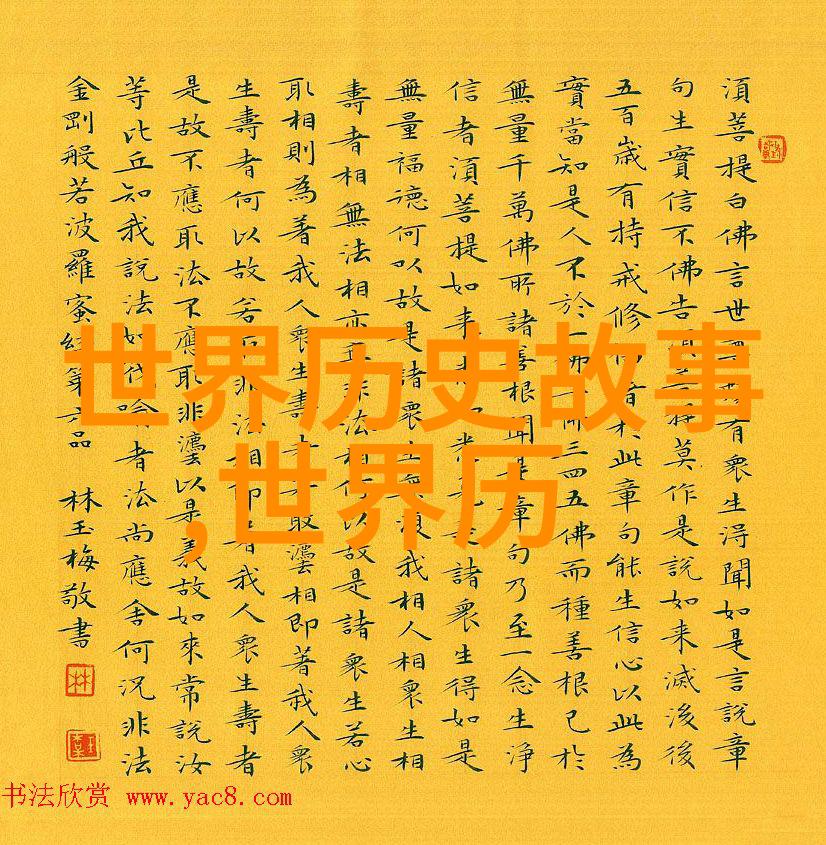 湏菩提白佛言世尊有衆生淂聞如是言說章
句生實信不佛告湏菩提莫作是說如来滅後後
五百歲有持戒修福者於此章句能生信心以此為
實當知是人不於一佛二佛三四五佛而種善根已於
無量千萬佛所諸善根聞是章句乃至一念生淨
信者湏菩提如来悉知悉見是諸衆生得如是
無量福德何以故是諸衆生無復我相人相衆生相
壽者相無法相亦無非法相何以故是諸衆生若心
取相則為著我人衆生壽者若取灋相即著我人衆
生壽者何以故若取非法相即著我人衆生壽者
是故不應取法不應取非灋以是義故如來常說汝
等比丘知我說法如筏喻者法尚應舍何況非法
金剛般若波羅蜜經第六品 林玉梅敬書
林
世界历史故事
,世界历
书法欣赏 www.yac8.com